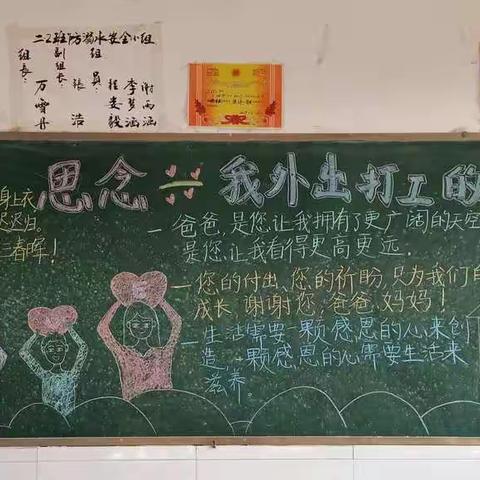 二2班防溺水安全小组
组长：万雪丹
副组长：张浩
组员：程娄毅
李梦涵
谢雨涵
身上衣
迟迟归。
三春晖！
思念 我外出打工的
一爸爸,是您,让我拥有了更广阔的天空
是您,让我看得更高更远.
一您的付出、您的祈盼,只为我们的
成长,谢谢您,爸爸、妈妈！
一生活需要一颗感恩的心来创
造,一颗感恩的心需要生活来
滋养.